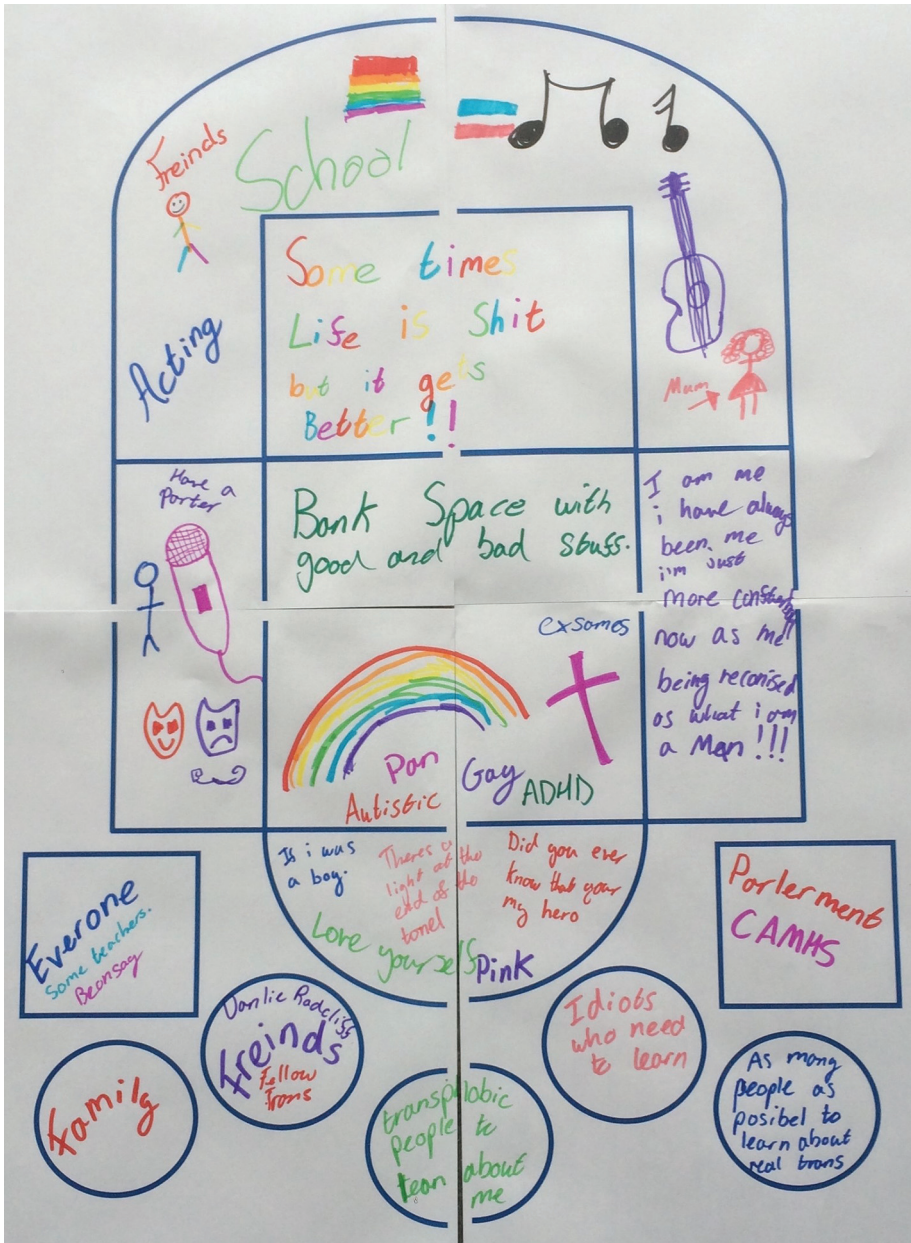 Freinds
School
Acting
Mum
Some times
Life is Shit
but it gets
Better !!
Have a
Porter
Bank Space with
good and bad stuff.
I am me
i have always
been me
i'm just
more
now as me
being reconised
as what i am
a Man !!!
exsomes
Pan
Gay
Autistic
ADHD
If i was
a boy.
Theres a
light at the
end of the
tonel
Did you ever
know that your
my hero
Love yourself
Pink
Everone
Some teachers.
Parlerment
CAMHS
Danlie Radcliff
Freinds
Fellow
Trans
Family
Idiots
who need
to learn
transphobic
people to
lean about
me
As many
people as
posibel to
learn about
real trans